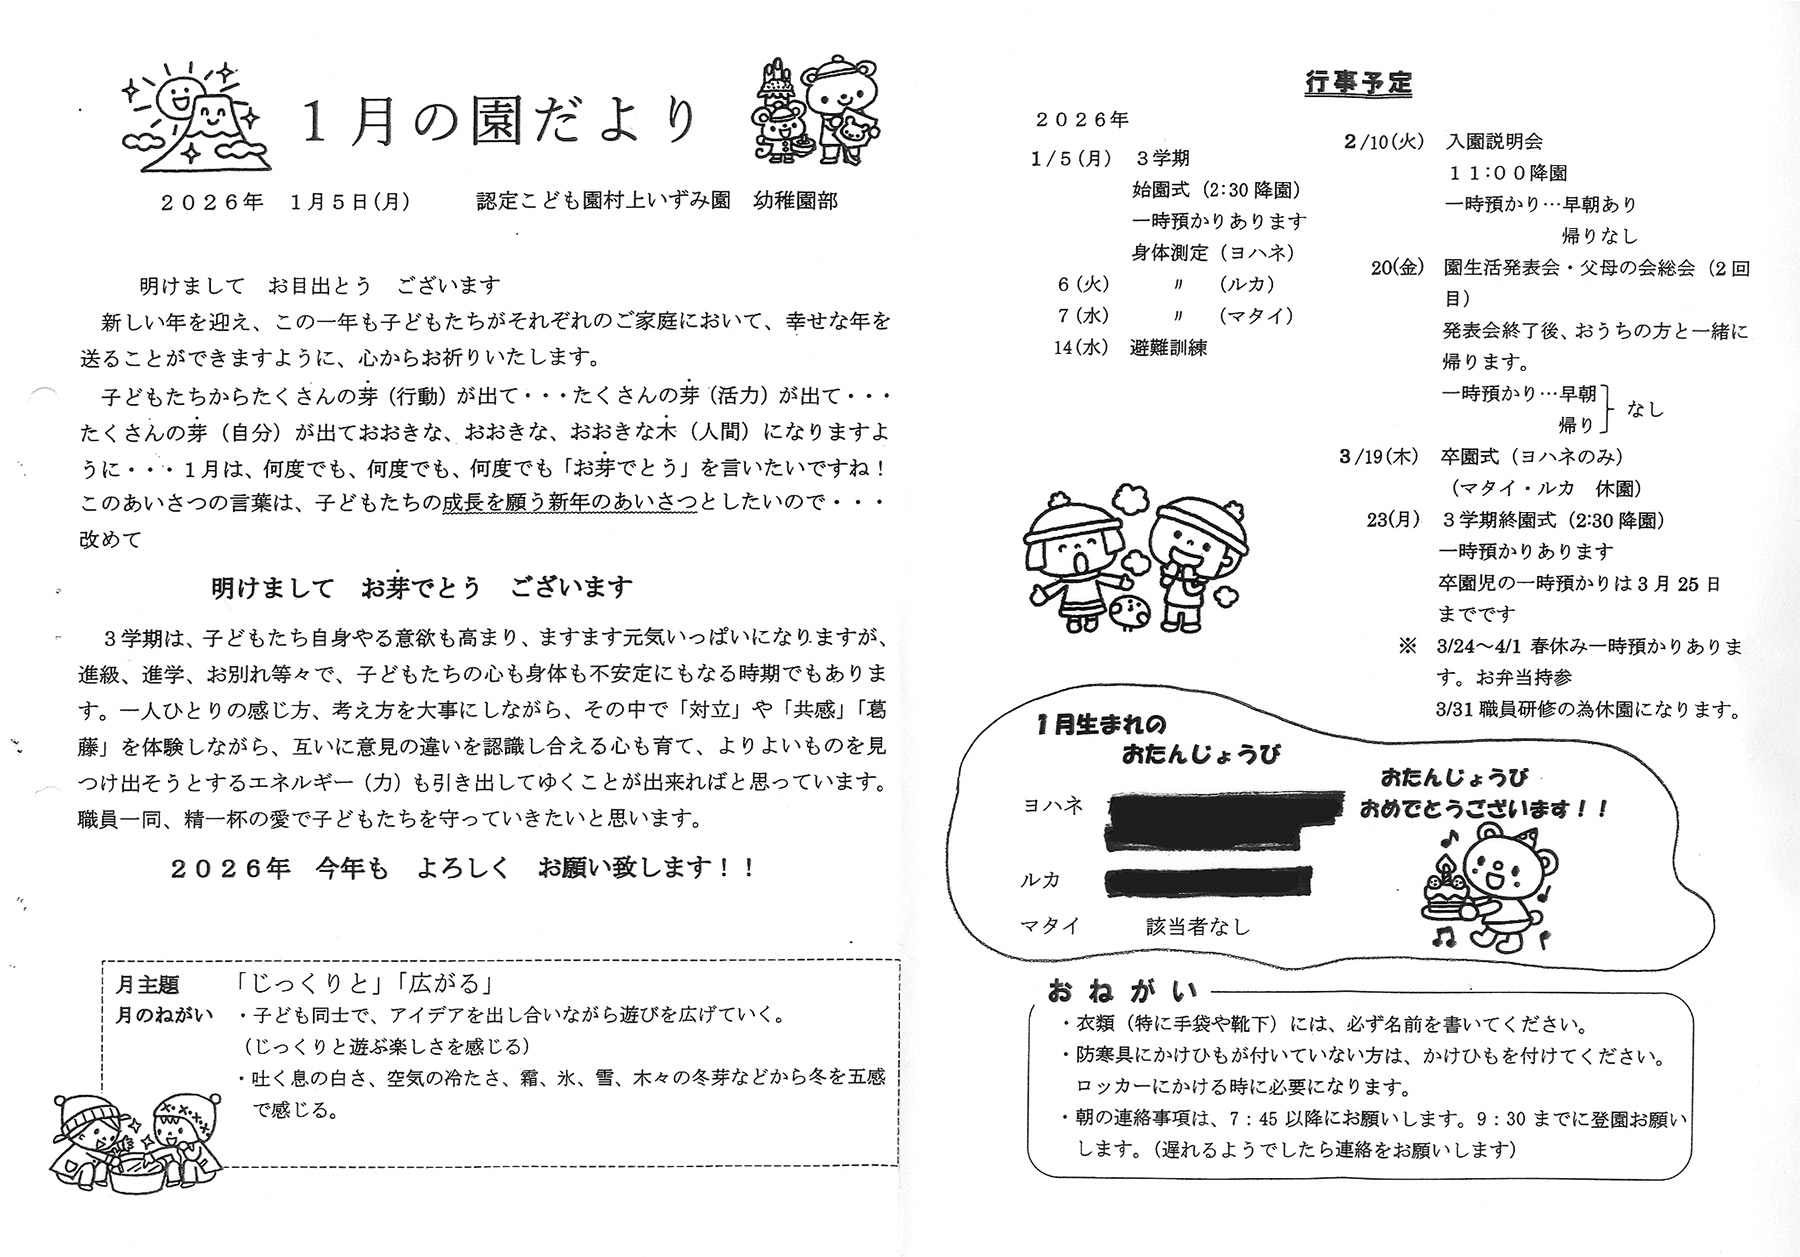 １月の園だより
２０２６年　１月５日(月)　　　認定こども園村上いずみ園　幼稚園部
明けまして　お目出とう　ございます
新しい年を迎え、この一年も子どもたちがそれぞれのご家庭において、幸せな年を
送ることができますように、心からお祈りいたします。
子どもたちからたくさんの芽（行動）が出て・・・たくさんの芽（活力）が出て・・・
たくさんの芽（自分）が出ておおきな、おおきな、おおきな木（人間）になりますよ
うに・・・１月は、何度でも、何度でも、何度でも「お芽でとう」を言いたいですね！
このあいさつの言葉は、子どもたちの成長を願う新年のあいさつとしたいので・・・
改めて
明けまして　お芽でとう　ございます
３学期は、子どもたち自身やる意欲も高まり、ますます元気いっぱいになりますが、
進級、進学、お別れ等々で、子どもたちの心も身体も不安定にもなる時期でもありま
す。一人ひとりの感じ方、考え方を大事にしながら、その中で「対立」や「共感」「葛
藤」を体験しながら、互いに意見の違いを認識し合える心も育て、よりよいものを見
つけ出そうとするエネルギー（力）も引き出してゆくことが出来ればと思っています。
職員一同、精一杯の愛で子どもたちを守っていきたいと思います。
２０２６年　今年も　よろしく　お願い致します！！
月主題　「じっくりと」「広がる」
月のねがい　・子ども同士で、アイデアを出し合いながら遊びを広げていく。
（じっくりと遊ぶ楽しさを感じる）
・吐く息の白さ、空気の冷たさ、霜、氷、雪、木々の冬芽などから冬を五感
で感じる。
行事予定
２０２６年
1/5(月)　３学期
始園式（2:30 降園）
一時預かりあります
身体測定（ヨハネ）
6(火)　〃　（ルカ）
7(水)　〃　（マタイ）
14(水)　避難訓練
2/10(火)　入園説明会
１１:００降園
一時預かり…早朝あり
帰りなし
20(金)　園生活発表会・父母の会総会（2回
目）
発表会終了後、おうちの方と一緒に
帰ります。
一時預かり…早朝
帰り　なし
3/19(木)　卒園式（ヨハネのみ）
（マタイ・ルカ　休園）
23(月)　３学期終園式（2:30 降園）
一時預かりあります
卒園児の一時預かりは３月 25 日
までです
※　3/24～4/1 春休み一時預かりありま
す。お弁当持参
3/31 職員研修の為休園になります。
１月生まれの
おたんじょうび
ヨハネ
ルカ
マタイ　該当者なし
おたんじょうび
おめでとうございます！！
おねがい
・衣類（特に手袋や靴下）には、必ず名前を書いてください。
・防寒具にかけひもが付いていない方は、かけひもを付けてください。
ロッカーにかける時に必要になります。
・朝の連絡事項は、7：45 以降にお願いします。9：30 までに登園お願い
します。（遅れるようでしたら連絡をお願いします）